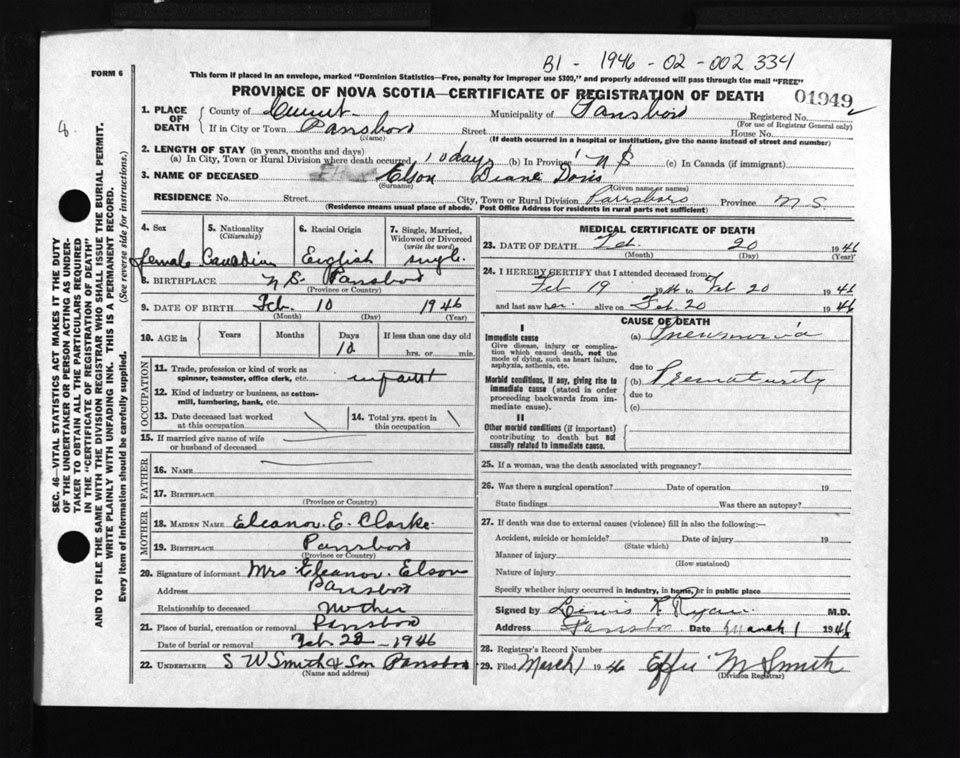 B1 - 1946 - 02 - 002 334
FORM 6
This form if placed in an envelope, marked "Dominion Statistics—Free, penalty for improper use $300," and properly addressed will pass through the mail "FREE"
PROVINCE OF NOVA SCOTIA—CERTIFICATE OF REGISTRATION OF DEATH
01949
8
1. PLACE OF DEATH
County of
Municipality of Parrsboro
Registered No.
(For use of Registrar General only)
If in City or Town Parrsboro
(Name)
Street
House No.
(If death occurred in a hospital or institution, give the name instead of street and number)
2. LENGTH OF STAY (in years, months and days)
(a) In City, Town or Rural Division where death occurred 10 days (b) In Province N S (c) In Canada (if immigrant)
3. NAME OF DECEASED Elson Diane Doris
(Surname) (Given name or names)
RESIDENCE No. Street City, Town or Rural Division Parrsboro Province N S.
(Residence means usual place of abode. Post Office Address for residents in rural parts not sufficient)
4. Sex
Female
5. Nationality
(Citizenship)
Canadian
6. Racial Origin
English
7. Single, Married, Widowed or Divorced
(write the word)
single
8. BIRTHPLACE N S. Parrsboro
(Province or Country)
9. DATE OF BIRTH Feb. 10 1946
(Month) (Day) (Year)
10. AGE in
Years
Months
Days
10
If less than one day old
hrs. or min.
OCCUPATION
11. Trade, profession or kind of work as spinner, teamster, office clerk, etc. infant
12. Kind of industry or business, as cotton-mill, lumbering, bank, etc.
13. Date deceased last worked at this occupation
14. Total yrs. spent in this occupation
15. If married give name of wife or husband of deceased
FATHER
16. NAME
17. BIRTHPLACE
(Province or Country)
MOTHER
18. MAIDEN NAME Eleanor E. Clarke
19. BIRTHPLACE Parrsboro
(Province or Country)
20. Signature of informant Mrs Eleanor Elson
Address Parrsboro
Relationship to deceased Mother
21. Place of burial, cremation or removal Parrsboro
Date of burial or removal Feb. 22 - 1946
22. UNDERTAKER S W Smith & Son Parrsboro
(Name and address)
MEDICAL CERTIFICATE OF DEATH
23. DATE OF DEATH Feb. 20 1946
(Month) (Day) (Year)
24. I HEREBY CERTIFY that I attended deceased from
Feb 19 1946 to Feb 20 1946
and last saw her alive on Feb. 20 1946
CAUSE OF DEATH
I
Immediate cause
Give disease, injury or complication which caused death, not the mode of dying, such as heart failure, asphyxia, asthenia, etc.
(a) Pneumonia
due to
Morbid conditions, if any, giving rise to immediate cause (stated in order proceeding backwards from immediate cause).
(b) Prematurity
due to
(c)
II
Other morbid conditions (if important) contributing to death but not causally related to immediate cause.
25. If a woman, was the death associated with pregnancy?
26. Was there a surgical operation? Date of operation 19
State findings Was there an autopsy?
27. If death was due to external causes (violence) fill in also the following:—
Accident, suicide or homicide? Date of injury 19
(State which)
Manner of injury
(How sustained)
Nature of injury
Specify whether injury occurred in industry, in home, or in public place
Signed by Lewis R Ryan M.D.
Address Parrsboro Date March 1 1946
28. Registrar's Record Number
29. Filed March 1 1946 Effie M Smith
(Division Registrar)
SEC. 46—VITAL STATISTICS ACT MAKES IT THE DUTY
OF THE UNDERTAKER OR PERSON ACTING AS UNDER-
TAKER TO OBTAIN ALL THE PARTICULARS REQUIRED
IN THE "CERTIFICATE OF REGISTRATION OF DEATH"
AND TO FILE THE SAME WITH THE DIVISION REGISTRAR WHO SHALL ISSUE THE BURIAL PERMIT.
WRITE PLAINLY WITH UNFADING INK. THIS IS A PERMANENT RECORD.
Every item of information should be carefully supplied. (See reverse side for instructions.)